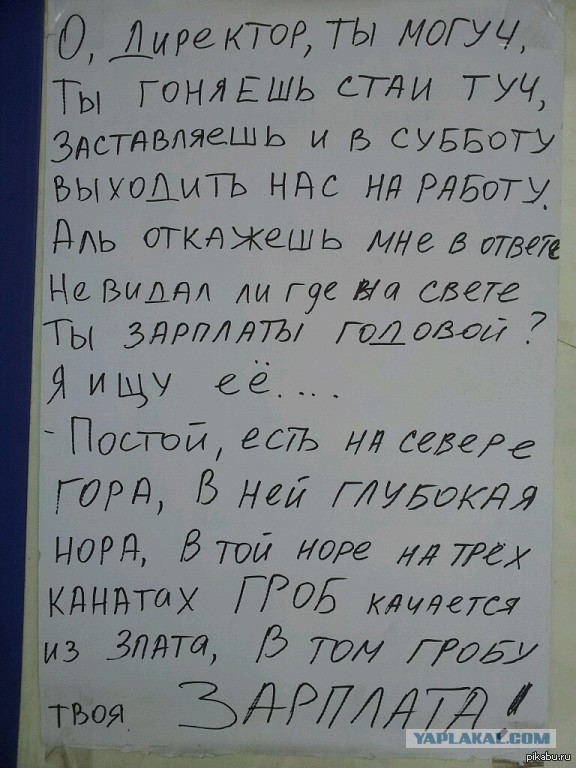 О, Директор, ты могуч,
Ты гоняешь стаи туч,
Заставляешь и в субботу
выходить нас на работу.
Аль откажешь мне в ответе
Не видал ли где на свете
Ты зарплаты годовой?
Я ищу её....
- Постой, есть на севере
гора, в ней глубокая
нора, в той норе на трёх
канатах ГРОБ качается
из злата, в том гробу
твоя ЗАРПЛАТА!
YAPLAKAL.COM
pikabu.ru